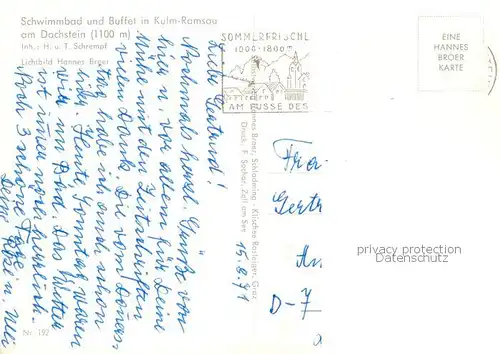 Schwimmbad und Buffet in Kulm-Ramsau
am Dachstein (1100 m)
Inh.: H. u. T. Schrempf
Lichtbild Hannes Broer
SOMMERFRISCHE
1000-1800 m
AM FUSSE DES
EINE
HANNES
BROER
KARTE
Liebe
Nochmals herzl. Grüße von
hier u. vor allem für Deine
Mühe mit den Zeitschriften
vielen Dank. Die vom Donners-
tag habe ich auch schon
Heute, Sonntag waren
wir im Bad. Das Wetter
ist immer noch herrlich.
Noch 3 schöne Tage.
Hannes Broer, Schladming - Klischee Rastleiger, Graz
Druck: F. Sochor, Zell am See
15.8.71
Frau
Gertr
D-7
privacy protection
Datenschutz
Nr. 192